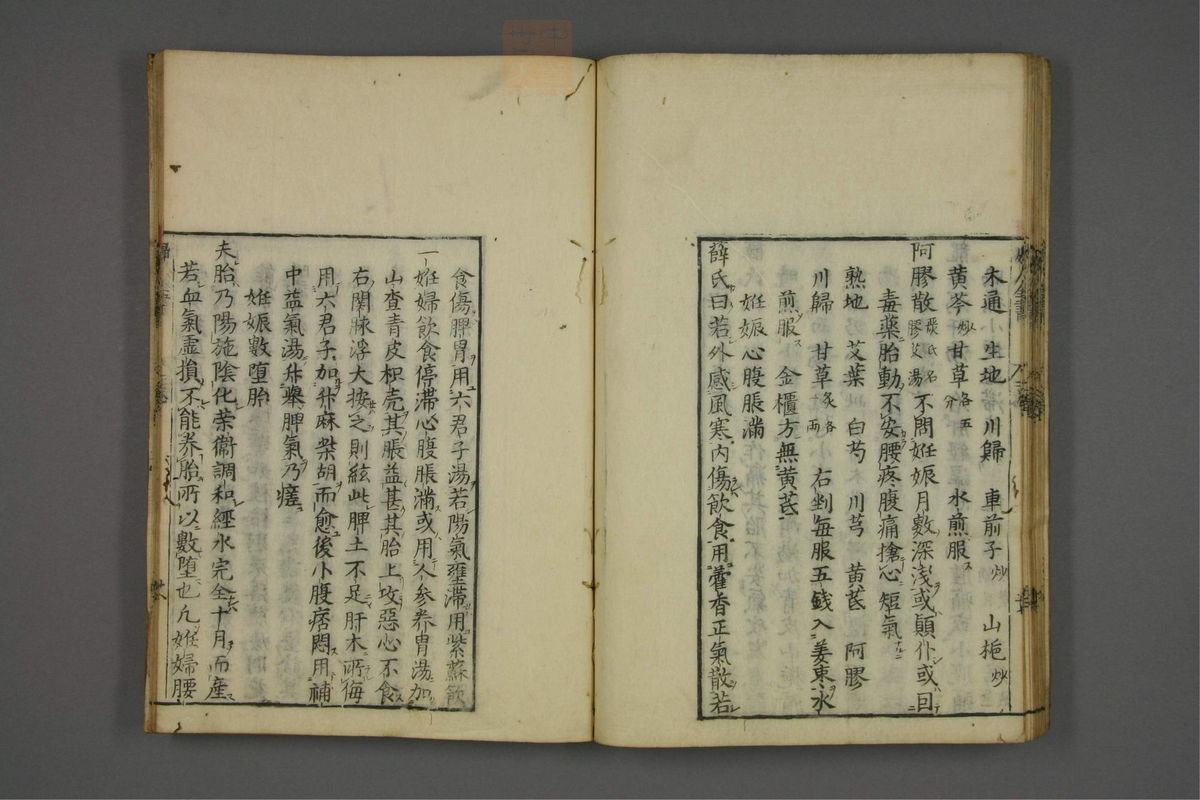 木通 生地 川歸 車前子炒 山梔炒
黄芩炒 甘草各五分 水煎服
阿膠散 不問妊娠月數深淺或顛仆或因
毒藥胎動不安腰疼腹痛搶心短氣
熟地 艾葉 白芍 川芎 黄芪 阿膠
川歸 甘草炙各 右剉每服五錢入姜棗水
煎服 金櫃方無黄芪
妊娠心腹脹滿
薛氏曰若外感風寒内傷飲食用藿香正氣散若
食傷脾胃用六君子湯若陽氣壅滯用紫蘇飲
一妊婦飲食停滯心腹脹滿或用人參養胃湯加
山查青皮枳壳其脹益甚其胎上攻惡心不食
右関脉浮大按之則絃此脾土不足肝木所侮
用六君子加升麻柴胡而愈後小腹痞悶用補
中益氣湯升舉脾氣乃瘥
妊娠數墮胎
夫胎乃陽施陰化荣衛調和經水完全十月而產
若血氣虚損不能养胎所以數墮也凡妊婦腰